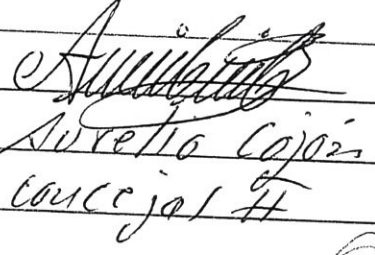 Aurelio Cojón
concejal II